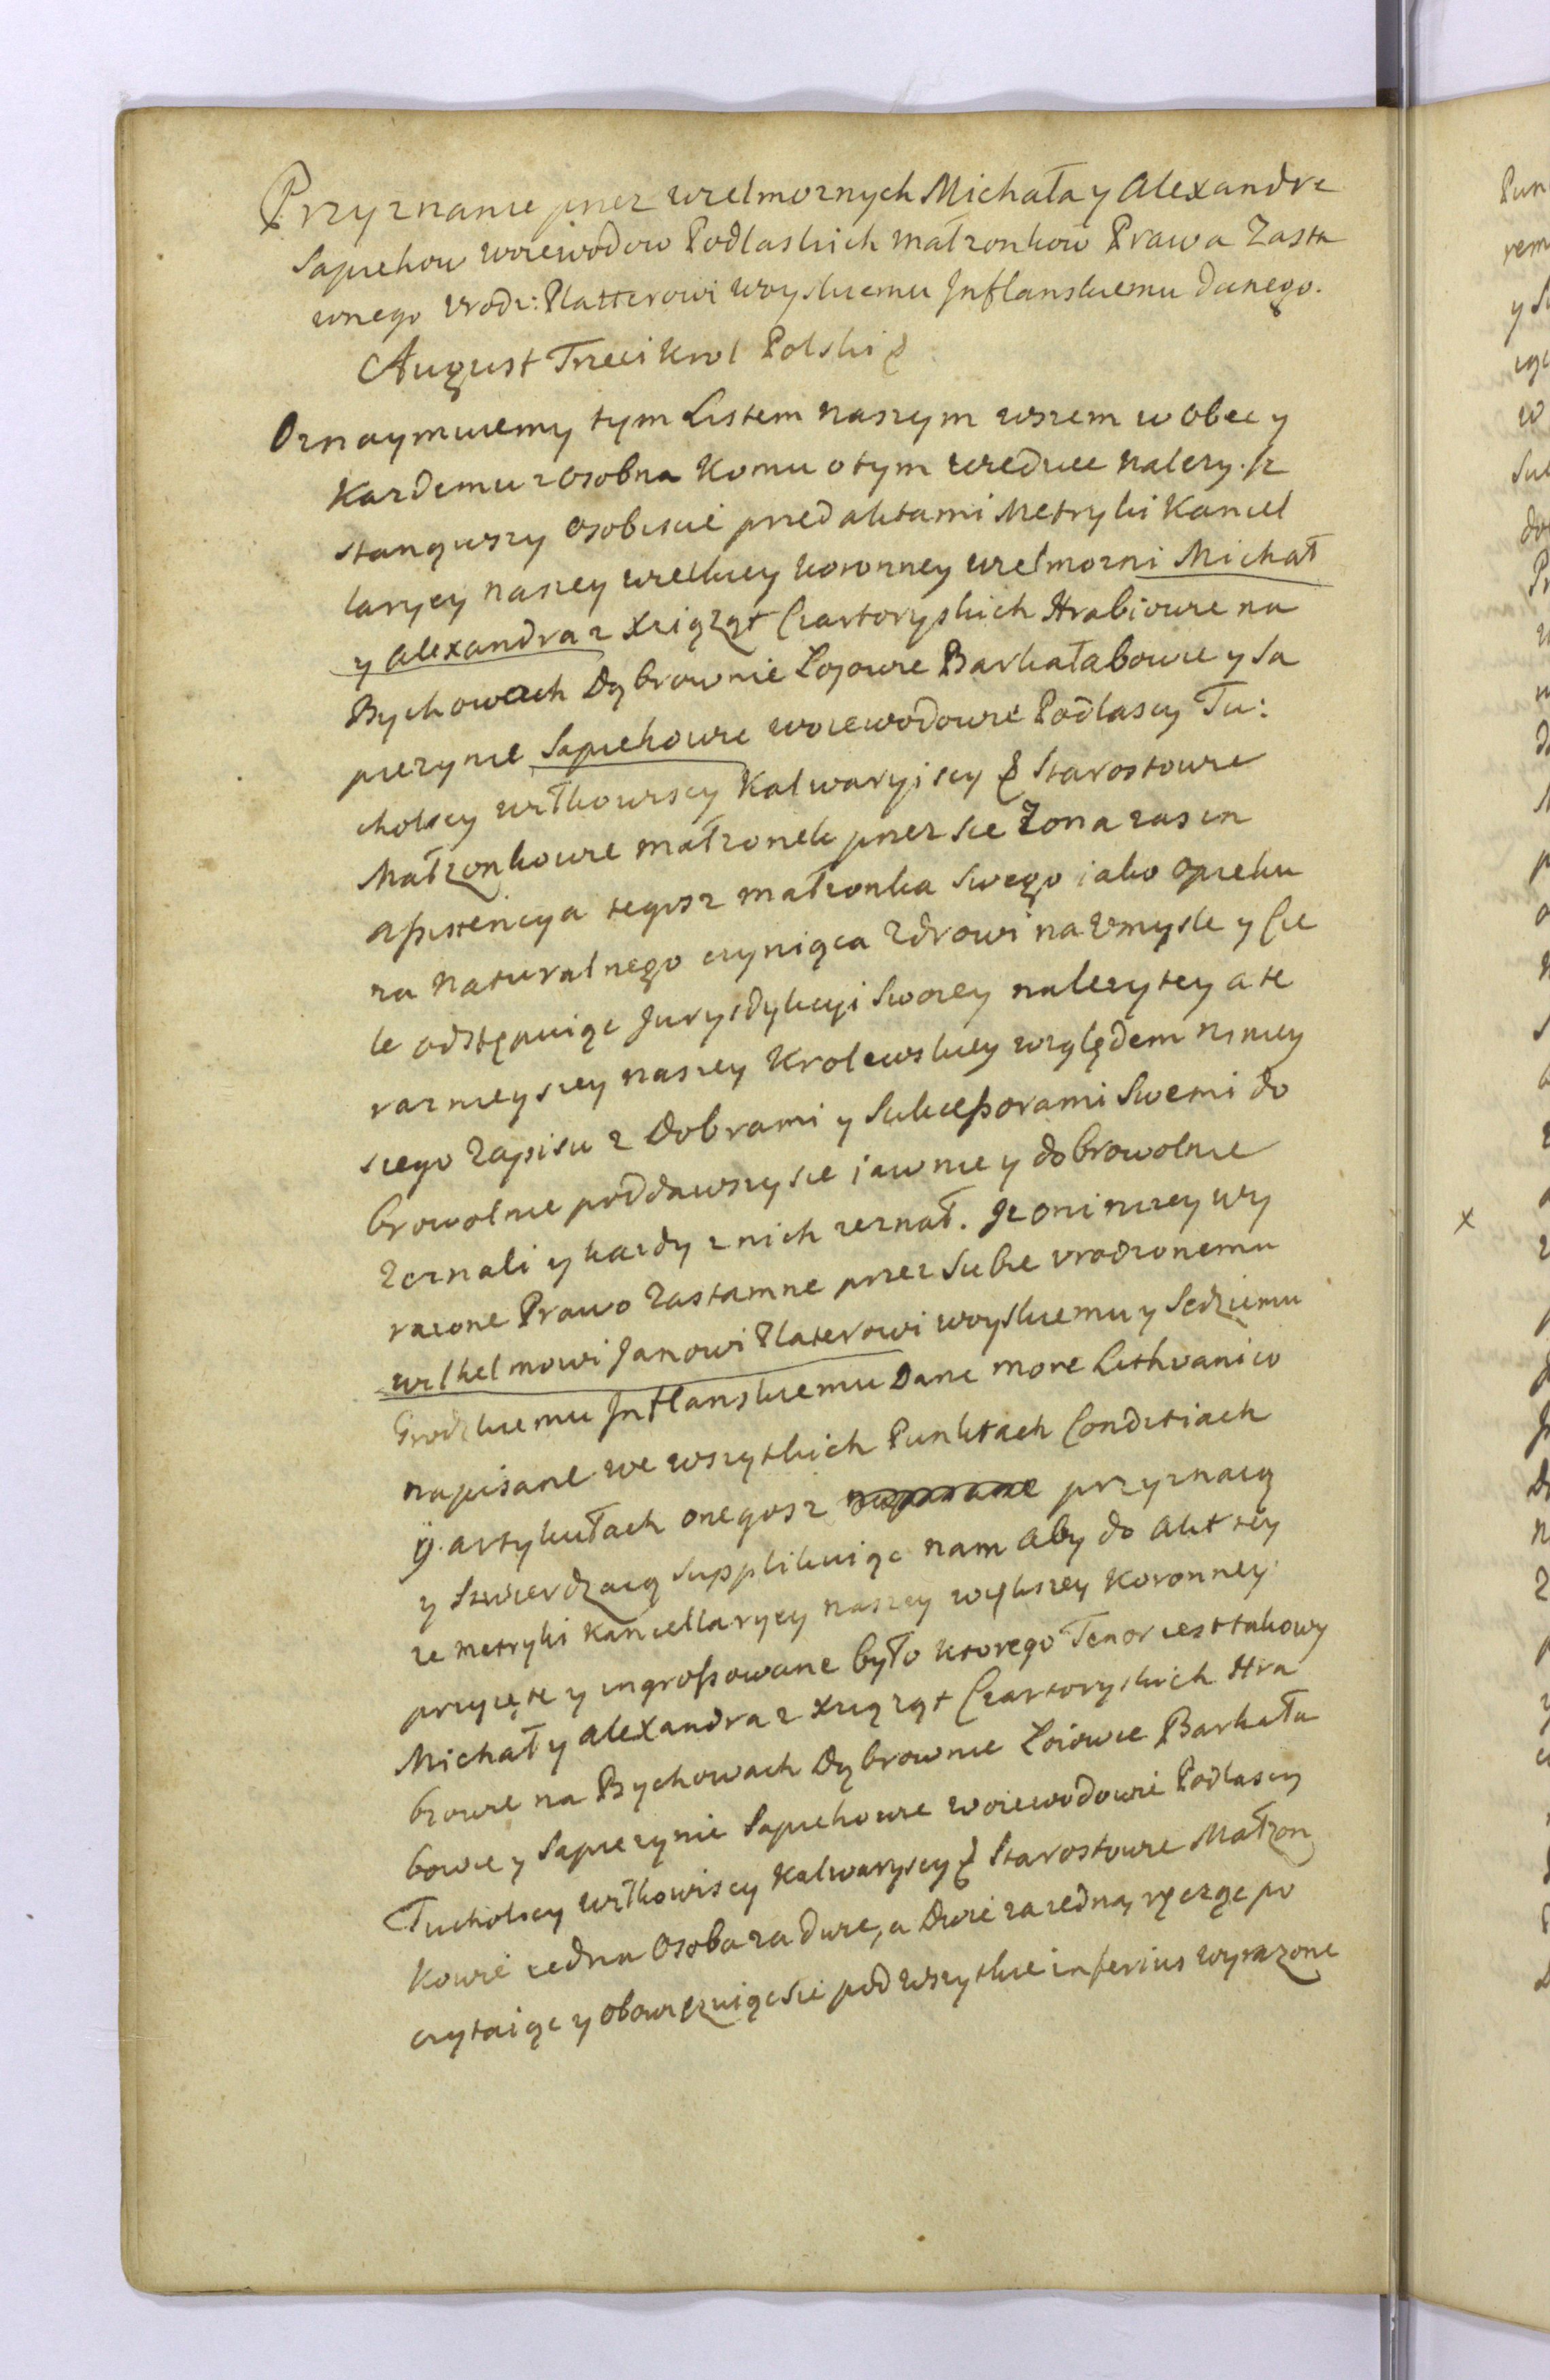 Przyznanie przez wielmoznych Michała y Alexandrę
Sapiehow woiewodow Podlaskich małzonkow Prawa Zasta
wnego Vrodz: Platterowi woyskiemu Inflanskiemu danego.
August Trzeci Krol Polski &
Oznaymuiemy tym Listem naszym wszem w obec y
Kazdemu z osobna Komu o tym wiedziec nalezy. Iz
stanąwszy osobiscie przed aktami Metryki Kancel
laryey naszey wielkiey koronney wielmozni Michał
y Alexandra z Xiążąt Czartoryskich Hrabiowie na
Bychowach Dąbrownie Łojowie Barkałabowie y Sa
piezynie Sapiehowie woiewodowie Podlascy Tu:
cholscy wiłkowiscy Kalwaryiscy & Starostowie
Małzonkowie małzonek przez się Zona zas in
assistencya tegosz małzonka swego iako opieku
na naturalnego czyniąca zdrowi na Vmysle y Cie
le odstępuiąc Jurysdykcyi swoiey nalezytey a te
raznieyszey naszey Krolewskiey względem niniey
szego Zapisu z Dobrami y Sukcessorami swemi do
browolnie poddawszy się iawnie y dobrowolnie
Zeznali y kazdy z nich zeznał. Iz oni nizey wy
razone Prawo Zastawne przez siebie vrodzonemu
wilhelmowi Janowi Platerowi woyskiemu y Sędziemu
Grodzkiemu Inflanskiemu Dane more Lithvanico
napisane we wszytkich Punktach Conditiach
y artykułach onegosz przyznaią
y stwierdzaią supplikuiąc nam aby do akt tey
ze metryki Kancellaryey naszey większey koronney
przyięte y ingrossowane było ktorego Tenor iest takowy
Michał y Alexandra z Xiążąt Czartoryskich Hra
biowie na Bychowach Dąbrownie Łoiowie Barkała
bowie y Sapiezynie Sapiehowie woiewodowie Podlascy
Tucholscy wiłkowiscy Kalwaryscy & Starostowie Małzon
kowie iedna Osoba za dwie, a Dwie za iedną, ręcząc po
czytaiąc y obowięzuiąc się pod wszytkie inferius wyrazone